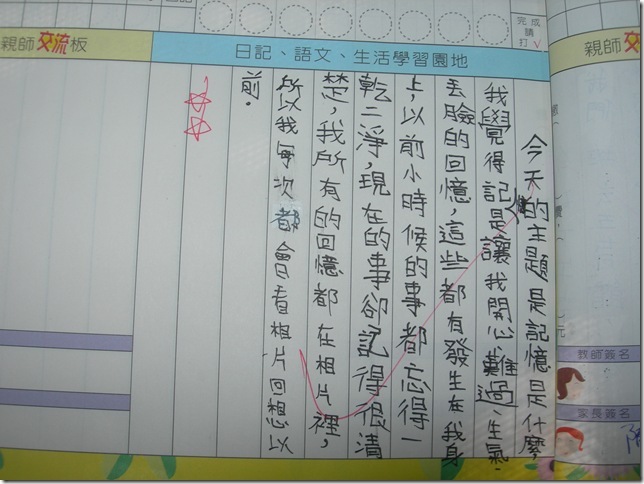 完成
請
打✓
親師交
日記、語文、生活學習園地
親師交流板
今天的主題是記憶是什麼,
我覺得記憶是讓我開心、難過、生氣、
丟臉的回憶,這些都有發生在我身
上,以前小時候的事都忘得一
乾二淨,現在的事卻記得很清
楚,我所有的回憶都在相片裡,
所以我每次都會看相片回想以
前。
元
教師簽名
家長簽名